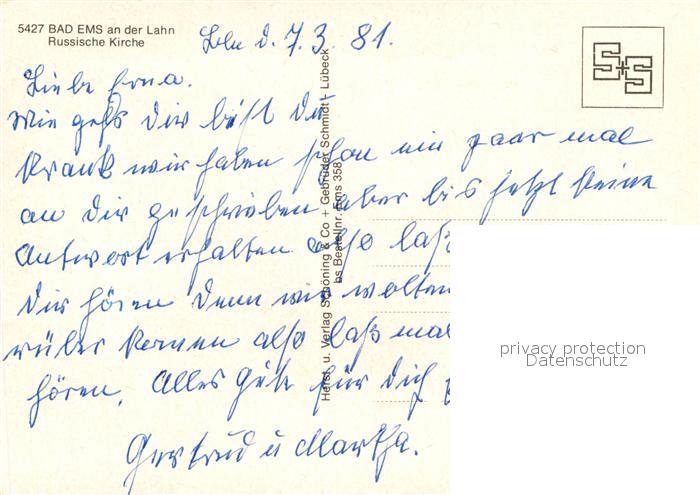 5427 BAD EMS an der Lahn
Russische Kirche
d. 7.3.81.
Liebe Erna.
Wie gehts Dir bist Du
krank wir haben schon ein paar mal
an Dir geschrieben aber bis jetzt keine
Antwort erhalten also laß
Dir hören denn wir wollten
rüber komen also laß mal
hören. Alles Gute für Dich
Gertrud u Martha.
Herst. u. Verlag Schöning & Co + Gebrüder Schmidt - Lübeck
bs Bestellnr. Ems 358
S+S
privacy protection
Datenschutz